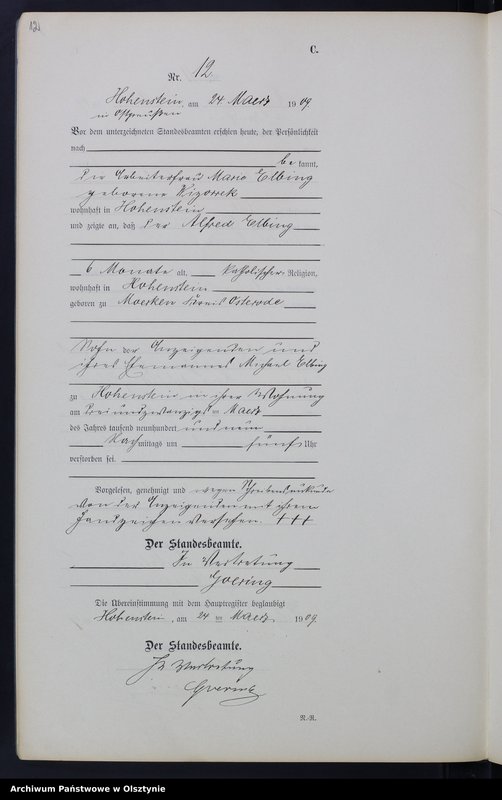 12
C.
Nr. 12
Hohenstein, am 24 Maerz 1909
in Ostpreußen
Vor dem unterzeichneten Standesbeamten erschien heute, der Persönlichkeit
nach
be kannt,
die Arbeiterfrau Marie Elbing
geborene
wohnhaft in Hohenstein
und zeigte an, daß der Alfred Elbing
6 Monate alt, katholischer Religion,
wohnhaft in Hohenstein
geboren zu Moerken Kreis Osterode
Sohn der Anzeigenden und
ihres Ehemannes Michael Elbing
zu Hohenstein in ihrer Wohnung
am dreiundzwanzigsten Maerz
des Jahres tausend neunhundert und neun
Nachmittags um fünf Uhr
verstorben sei.
Vorgelesen, genehmigt und wegen Schreibensunkunde
von der Anzeigenden mit ihrem
Handzeichen versehen. +++
Der Standesbeamte.
In Vertretung
Goering
Die Übereinstimmung mit dem Hauptregister beglaubigt
Hohenstein, am 24 ten Maerz 1909
Der Standesbeamte.
In Vertretung
Goering
N.-R.
Archiwum Państwowe w Olsztynie